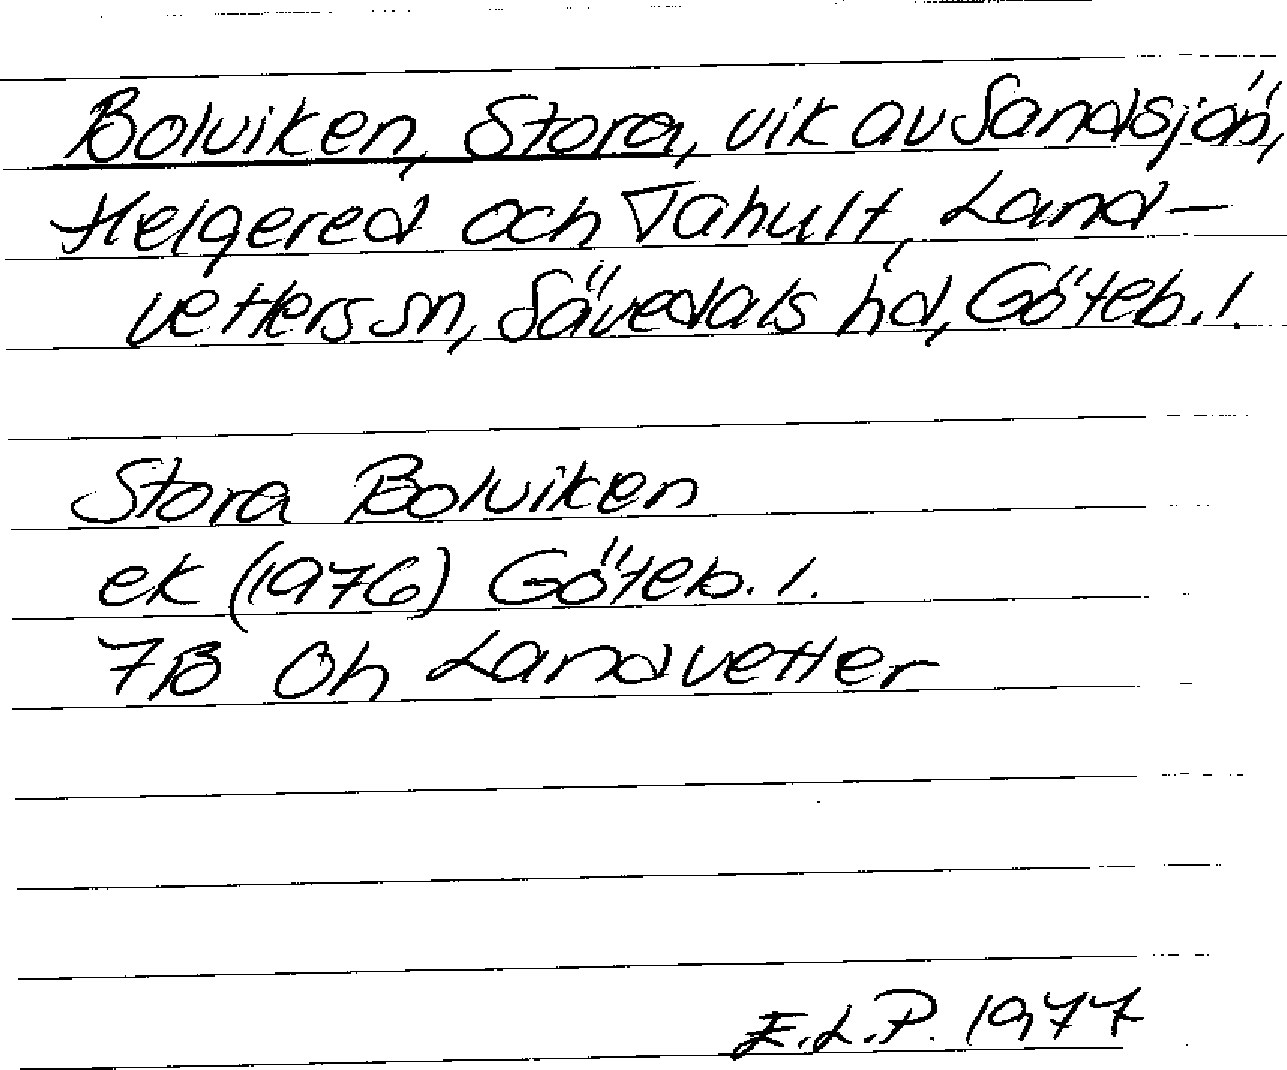 Bolviken, Stora, vik av Sandsjön,
Helgered och Tahult, Land-
vetters sn, Sävedals hd, Göteb. l.
Stora Bolviken
ek (1976) Göteb. l.
7B Oh Landvetter
E.L.P. 1977